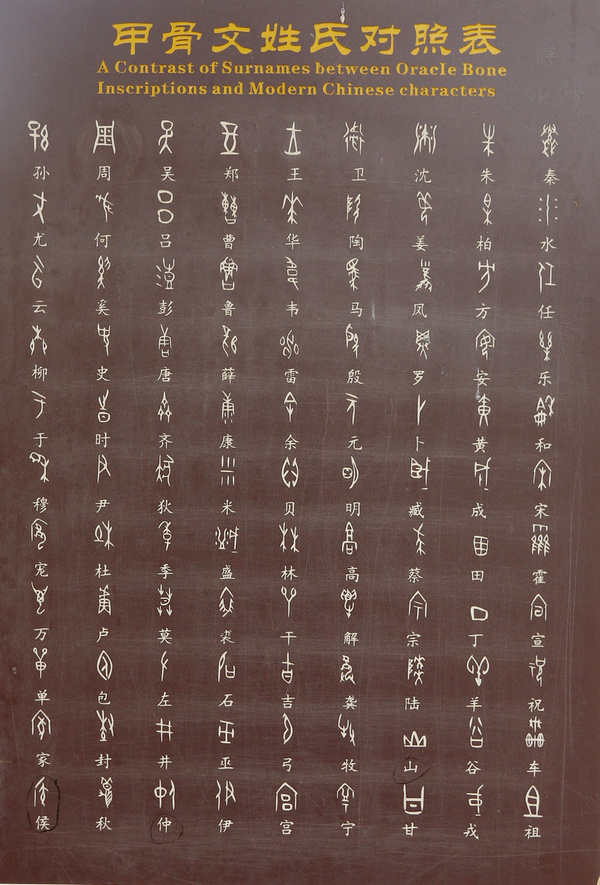 甲骨文姓氏对照表
A Contrast of Surnames between Oracle Bone
Inscriptions and Modern Chinese characters
孙 周 吴 郑 王 卫 沈 朱 秦
尤 何 吕 曹 华 陶 姜 柏 水
云 奚 彭 鲁 韦 马 凤 方 任
柳 史 唐 薛 雷 殷 罗 安 乐
于 时 齐 康 余 元 卜 黄 和
穆 尹 狄 米 贝 明 臧 成 宋
宠 杜 季 盛 林 高 蔡 田 霍
万 卢 莫 裘 干 解 宗 丁 宣
单 包 左 石 吉 龚 陆 羊 祝
家 封 井 巫 弓 牧 山 谷 车
侯 秋 仲 伊 宫 宁 甘 戎 祖